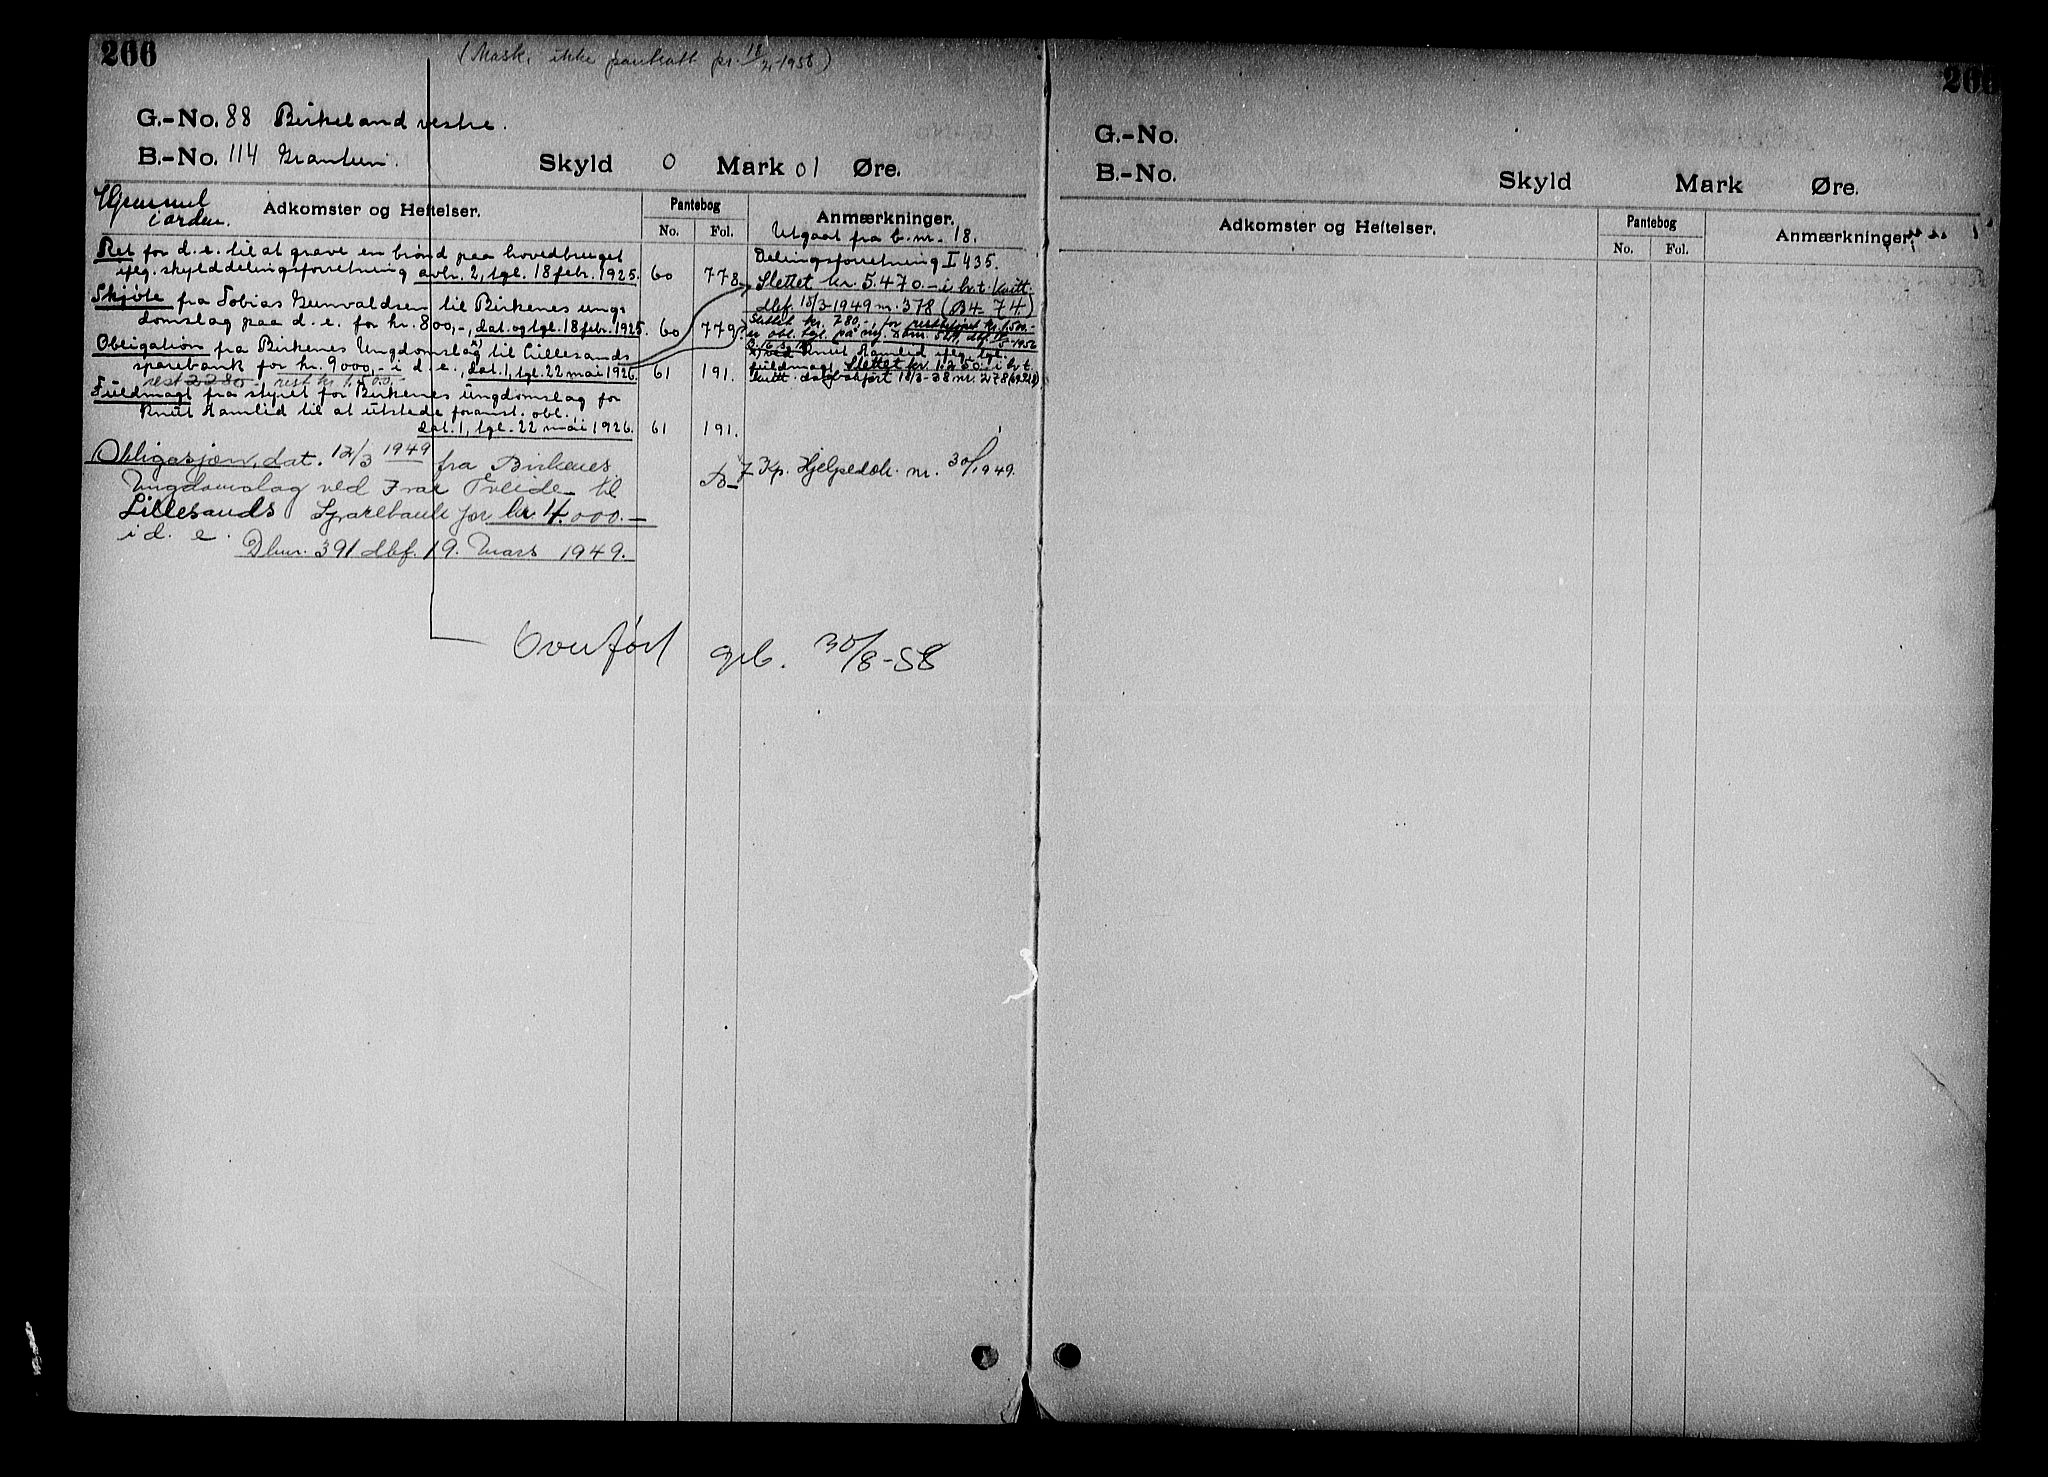 266
(Mask. ikke pantsatt pr. 18/2-1958)
G.-No. 88 Birkeland vestre.
B.-No. 114 Granheim. Skyld 0 Mark 01 Øre.
Hjemmel
i orden.
Adkomster og Heftelser.
Pantebog
No. Fol.
Anmærkninger.
Utgaat fra b.nr. 18.
Delingsforretning I 435.
Ret for d.e. til at grave en brønd paa hovedbruket
ifølg. skylddelingsforretning avh. 2, tgl. 18 febr. 1925. 60 778
Skjøte fra Tobias Gunvaldsen til Birkenes ung-
domslag paa d.e. for kr. 800,-, dat. og tgl. 18 febr. 1925. 60 779
Obligation fra Birkenes Ungdomslag x) til Lillesands
sparebank for kr. 9000,- i d.e., dat. 1, tgl. 22 mai 1926. 61 191.
rest 2280 rest kr. 1.500.-
Fuldmagt fra styret for Birkenes ungdomslag for
Knut Hamlid til at utstede foranst. obl.
dat. 1, tgl. 22 mai 1926. 61 191.
Slettet kr. 5.470.- i h.t. kvitt.
dbf. 18/3-1949 nr. 378 (B4 74)
Slettet kr. 780.-, for restbeløpet kr. 1.500.-
er obl. tgl. på ny
x) ved Knut Hamlid ifølg. tgl.
fuldmagt. Slettet kr. 1.250.- i h.t.
kvitt. dagbokført 18/3-38 nr. 278
Obligasjon, dat. 12/3 1949 fra Birkenes
Ungdomslag ved Ivar Treide til
Lillesands Sparebank for kr. 4.000.-
i d. e.
Dbnr. 391 dbf. 19. Mars 1949.
B-7 Kp. Hjelpedok. nr. 30/1949.
Overført grb. 30/8-58
266
G.-No.
B.-No. Skyld Mark Øre.
Adkomster og Heftelser.
Pantebog
No. Fol.
Anmærkninger.